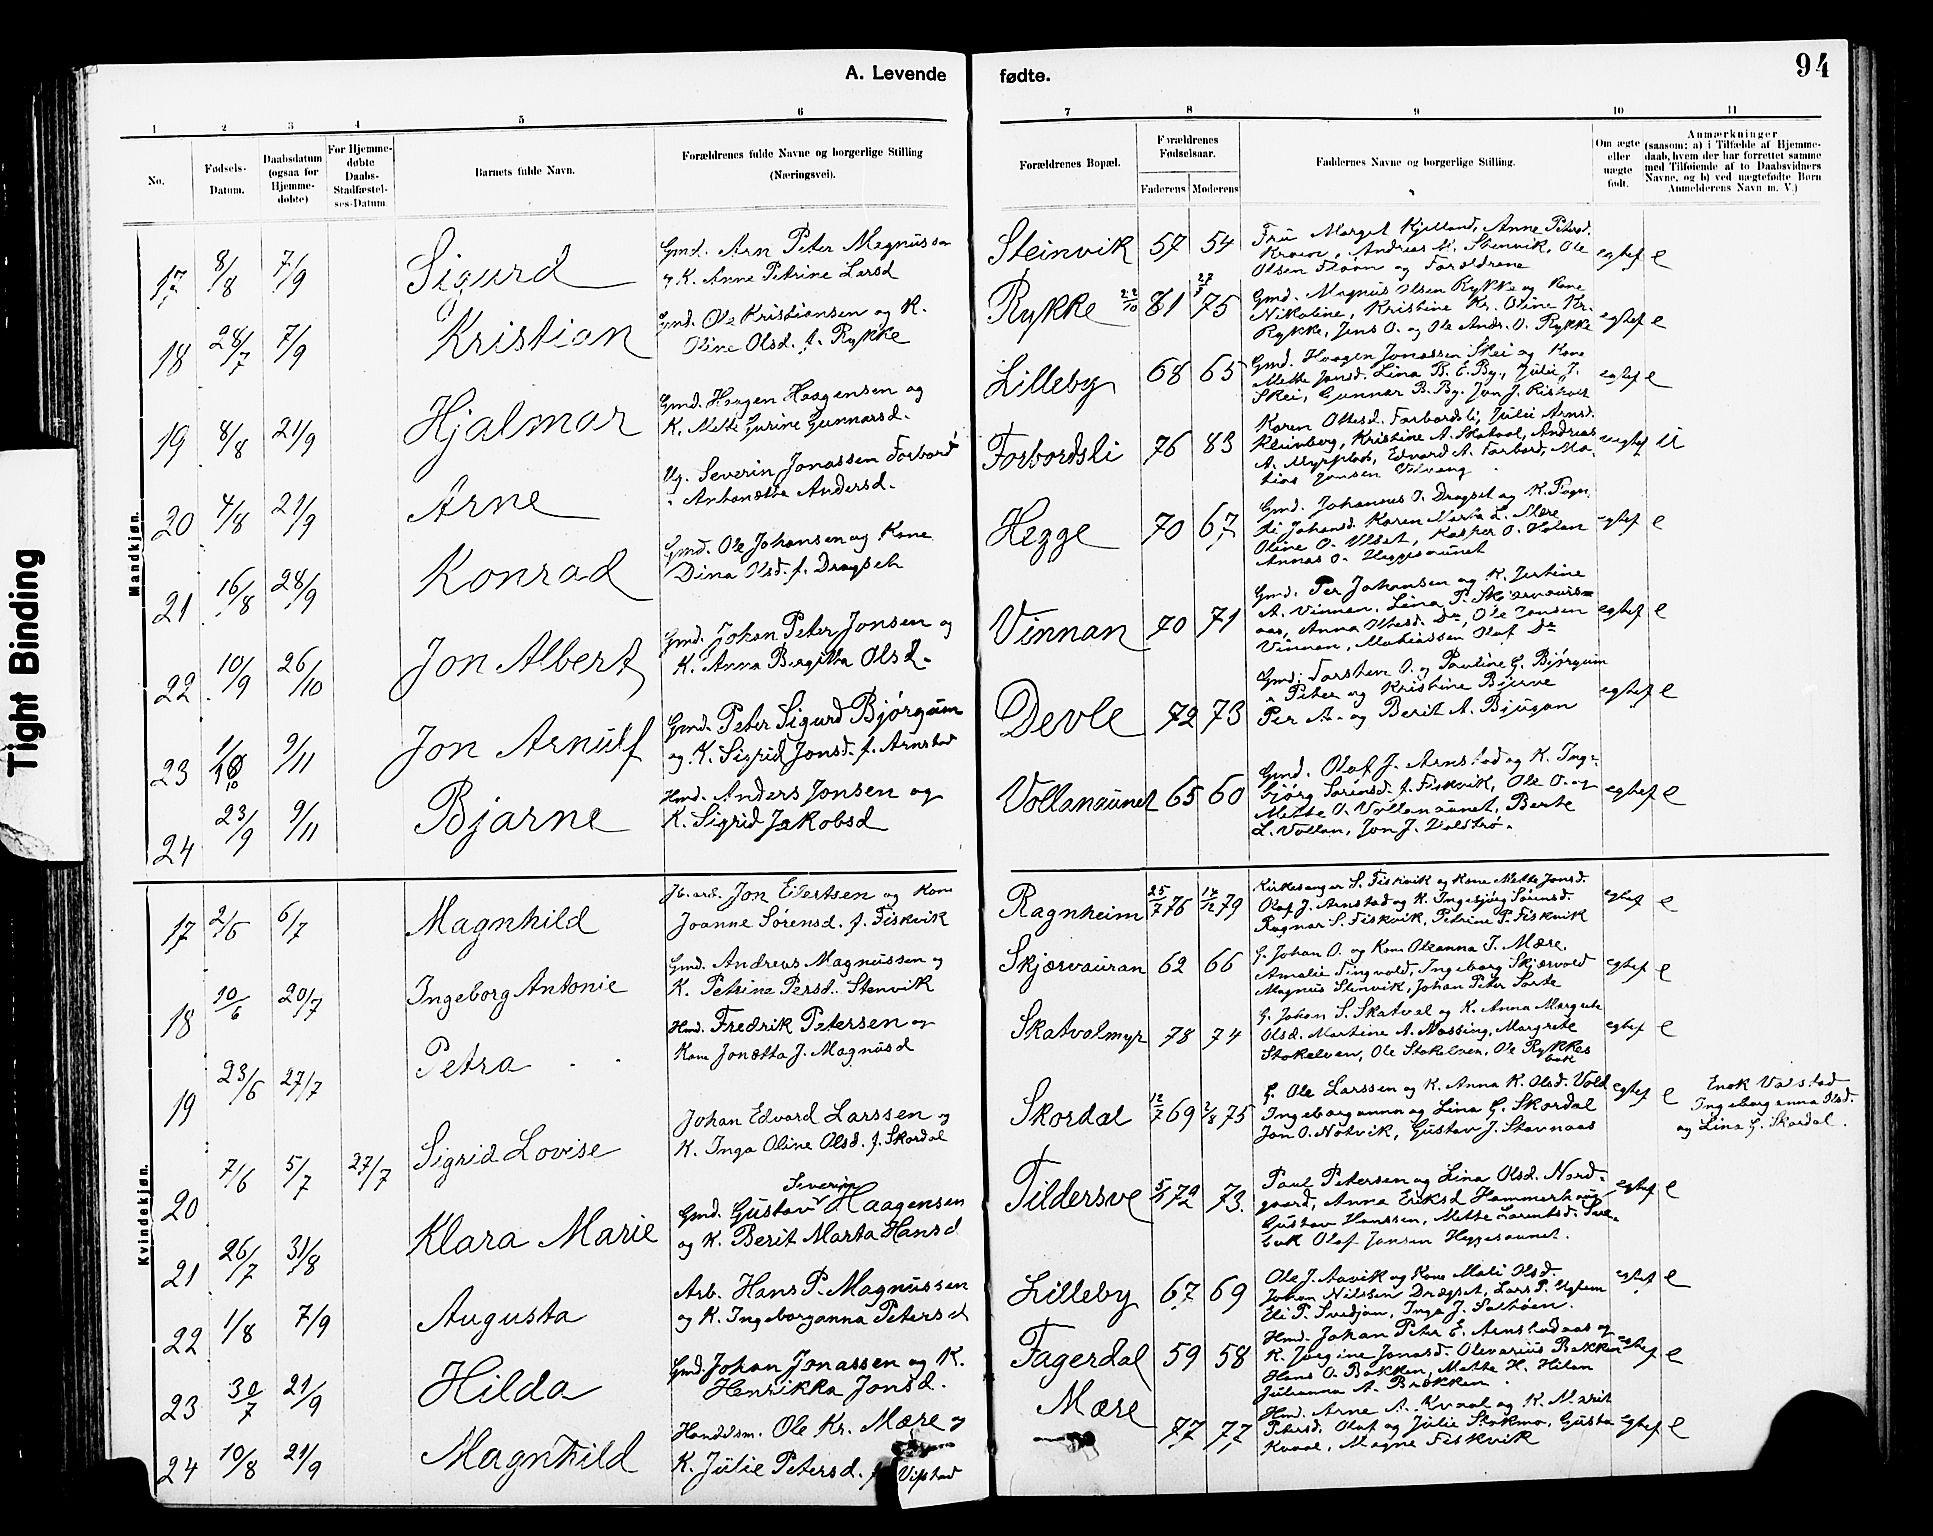 94
A. Levende fødte.
1 2 3 4 5 6 7 8 9 10 11
No.
Fødsels-
Datum.
Daabsdatum
(ogsaa for
Hjemme-
døbte)
For Hjemme-
døbte
Daabs-
Stadfæstel-
ses-Datum
Barnets fulde Navn.
Forældrenes fulde Navne og borgerlige Stilling
(Næringsvei).
Forældrenes Bopæl.
Forældrenes
Fødselsaar.
Faderens Moderens
Faddernes Navne og borgerlige Stilling.
Om ægte
eller
uægte
født.
Anmærkninger
(saasom: a) i Tilfælde af Hjemme-
daab, hvem der har forrettet samme
med Tilføiende af to Daabsvidners
Navne, og b) ved uægtefødte Børn
Anmelderens Navn m. V.)
Tight Binding
Mandkjøn.
17 8/8 7/9 Sigurd
Gmd. Arn Peter Magnussen
og K. Anne Petrine Larsd
Steinvik 57 54
Fru Margit Kjelland, Anne Petersd.
Andreas M. Stenvik, Ole
Olsen Floan og Forældrene
egtef e
18 28/7 7/9 Kristian
Gmd. Ole Kristiansen og K.
Oline Olsd. f. Rykke
Rykke 22/10 81 75
Gmd. Magnus Olsen Rykke og Kone
Nikoline, Kristine Kr. Oline Kr.
Rykke, Jens O. og Ole Andr. O. Rykke
egtef e
19 8/8 21/9 Hjalmar
Gmd. Haagen Haagensen og
K. Mette Gurine Gunnarsd.
Lilleby 68 65
Gmd. Haagen Jonassen Skei og Kone
Mette Jonsd. Lina B. E. By, Julie J.
Skei, Gunnar B. By. Jon J.
egtef e
20 4/8 21/9 Arne
Ug. Severin Jonassen Forbord
Antonette Andersd.
Forbordsli 76 83
Karen Oltesd. Forbordsli, Julie Arnsd.
Kleinberg, Kristine A. Skatval, Andreas
A. Myrplads, Edvard A. Forbord, Ma-
tias Jonsen
uegtef u
21 16/8 28/9 Konrad
Gmd. Ole Johansen og Kone
Dina Olsd. f. Dragseth
Hegge 70 67
Gmd. Johannes O. Dragset og K. Ragn-
Johansd. Karen Marta L. Mære
Oline O. Kasper O. Holan
Annas O. Heggesaunet
egtef e
22 10/9 26/10 Jon Albert
Gmd. Johan Peter Jonsen og
K. Anna Bergitta Olsd.
Vinnan 70 71
Gmd. Per Johansen og K. Justine
A. Vinnan, Lina P. Skjærvaurs=
aas, Anna Oltesd. Do, Ole Jonsen
Vinnan, Mathiassen Olaf Do
egtef e
23 9/11 Jon Arnulf
Gmd. Peter Sigurd Bjørgum
og K. Sigrid Jonsd. f. Arnstad
Devle 72 73
Gmd. Torsten O. og Pauline G. Bjørgum
" Peter og Kristine Bjerve
Per A. og Berit A. Bjugan
egtef e
24 23/9 9/11 Bjarne
Hmd. Anders Jonsen og
K. Sigrid Jakobsd
Vollanaunet 65 60
Gmd. Olaf J. Arnstad og K. Inge-
bjørg Sørensd. f. Fiskvik, Ole O. og
Mette O. Vollanaunet, Berte
L. Vollan, Jon J.
egtef e
Kvindekjøn.
17 2/6 6/7 Magnhild
Jb.arb. Jon Eilertsen og Kone
Joanne Sørensd. f. Fiskvik
Ragnheim 25/7 76 79
Kirkesanger S. Fiskvik og Kone Mette Jonsd.
Olaf J. Arnstad og K. Ingebjørg Sørensd.
Ragnar S. Fiskvik, Petrine P. Fiskvik
egtef e
18 10/6 20/7 Ingeborg Antonie
Gmd. Andreas Magnussen og
K. Petrine Persd. Stenvik
Skjærvauran 62 66
G. Johan O. og Kone Oleanna T. Mære,
Amalie Tingvold, Ingeborg Skjærvold
Magnus Stenvik, Johan Peter Sorte
egtef e
19 23/6 27/7 Petra
Hmd. Fredrik Petersen og
Kone Jonetta J. Magnusd
Skatvalmyr 78 74
G. Johan S. Skatval og K. Anna Margrete
Olsd. Martine A. Massing, Margrete
Stokelven, Ole Stokelven, Ole Rykkes
bak
egtef e
20 7/6 5/7 27/7 Sigrid Lovise
Johan Edvard Larssen og
K. Inga Oline Olsd. f. Skordal
Skordal 12/7 69 2/8 75
G. Ole Larssen og K. Anna K. Olsd. Vold
Ingeborganna og Lina G. Skordal
Jon O. Notvik, Gustav J. Stavnaas
egtef e
Enok Valstad
Ingeborganna Olsd.
og Lina G. Skordal.
21 26/7 31/8 Klara Marie
Severin
Gmd. Gustav Haagensen
og K. Berit Marta Hansd
Tildersve 5/1 72 73
Paul Petersen og Lina Olsd. Nord-
gaard, Anna Eriksd Hammerhaug
Gustav Hanssen, Mette Larentsd.
Olaf Jonsen Heggesaunet.
egtef e
22 1/8 7/9 Augusta
Arb. Hans P. Magnussen
og K. Ingeborganna Petersd
Lilleby 67 69
Ole J. Aavik og Kone Mali Olsd.
Johan Nilssen Dragset, Lars P. Uglem
Eli P. Svedjan, Inga J.
egtef e
23 30/7 21/9 Hilda
Gmd. Johan Jonassen og K.
Henrikka Jonsd.
Fagerdal 59 58
Hmd. Johan Peter E. Arnstadaas og
K. Jørgine Jonasd. Olevarius Bakken
Hans O. Bakken, Mette H. Hilan
Julianna A. Brækken.
egtef e
24 10/8 21/9 Magnhild
Handelsm. Ole Kr. Mære og
K. Julie Petersd. f. Vifstad
Mære 77 77
Hmd. Arne A. Kvaal og K. Marit
Petersd. Olaf og Julie Stokmo, Gusta
Kvaal, Magne Fiskvik
egtef e